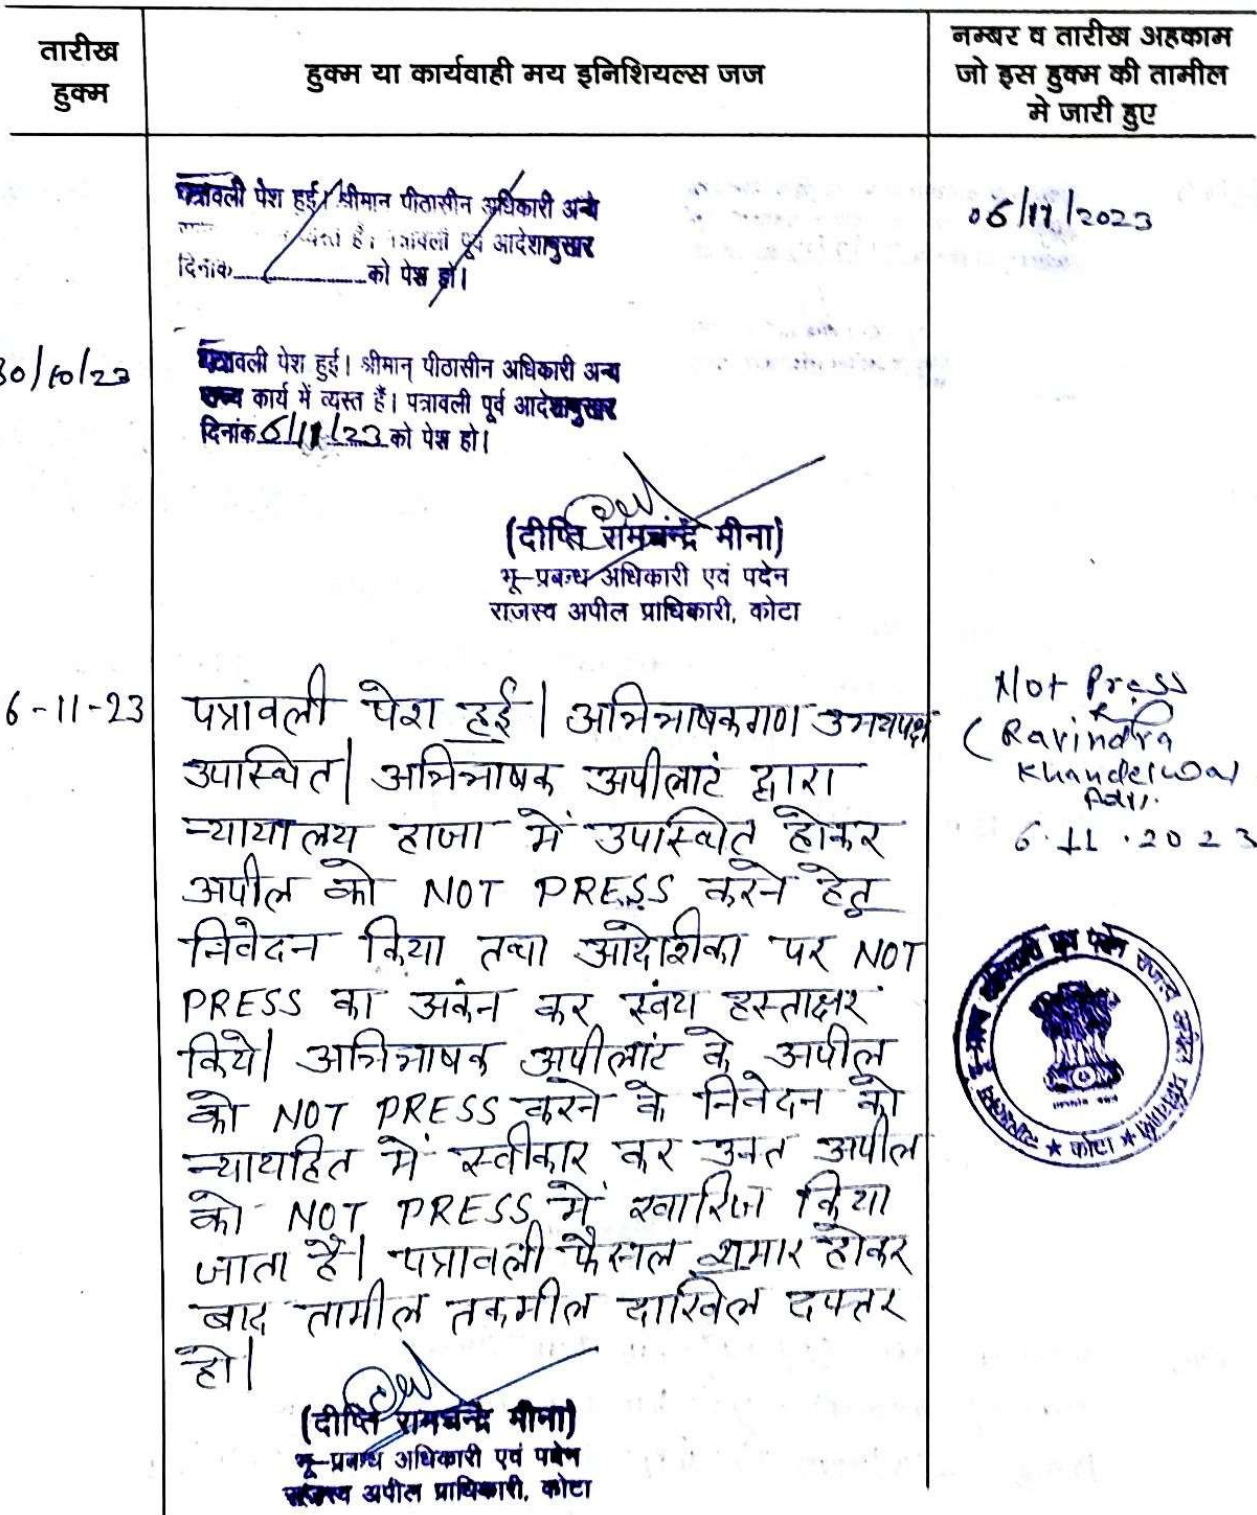 तारीख
हुक्म
हुक्म या कार्यवाही मय इनिशियल्स जज
नम्बर व तारीख अहकाम
जो इस हुक्म की तामील
मे जारी हुए
पत्रावली पेश हुई। श्रीमान पीठासीन अधिकारी अन्य
व्यस्त है। पत्रावली पूर्व आदेशानुसार
दिनांक को पेश हो।
06/11/2023
30/10/23
पत्रावली पेश हुई। श्रीमान् पीठासीन अधिकारी अन्य
राज्य कार्य में व्यस्त हैं। पत्रावली पूर्व आदेशानुसार
दिनांक 6/11/23 को पेश हो।
(दीप्ति रामचंन्द्र मीना)
भू-प्रबन्ध अधिकारी एवं पदेन
राजस्व अपील प्राधिकारी, कोटा
6-11-23
पत्रावली पेश हुई। अभिभाषकगण उभयपक्ष
उपास्थित। अभिभाषक अपीलाटं द्वारा
न्यायालय हाजा में उपास्थित होकर
अपील को NOT PRESS करने हेतु
निवेदन किया तथा आदेशिका पर NOT
PRESS का अकंन कर स्वंय हस्ताक्षर
किये। अभिभाषक अपीलांट के अपील
को NOT PRESS करने के निवेदन को
न्यायहित में स्वीकार कर उक्त अपील
को NOT PRESS में खारिज किया
जाता है। पत्रावली फैसल शुमार होकर
बाद तामील तकमील दाखिल दफ्तर
हो।
Not Press
(Ravindra
Khandelwal
Adv.
6.11.2023
न्यायालय भू-प्रबन्ध अधिकारी एवं पदेन राजस्व अपील प्राधिकारी
★ कोटा ★
(दीप्ति रामचन्द्र मीना)
भू-प्रबन्ध अधिकारी एवं पदेन
राजस्व अपील प्राधिकारी, कोटा